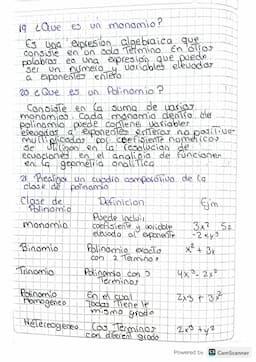 19 ¿Que es un monomio?
Es una expresión algebraica que
consiste en un solo Termino En otras
palabras es una expresion que puede
ser un numero y variables elevadas
a exponentes entero
20 ¿Que es un Polinomio?
Consiste en la suma de varios
monomios Cada monomio dentro de
polinomio puede contiene variables
elevadas a exponentes enteros no positiva-
multiplicados por coeficiente numericos
se utilizan en la resolucion de
ecuaciones en el analisis de funciones
en la geometria analitica
21 Realizar un cuadro comparativo de la
clase de polinomio
Clase de Polinomio Definicion Ejm
monomio Puede incluir coeficiente y variable elevado al exponente 3x² 5z
Binomio Polinomio exacto con 2 Terminos x² + 3x
Trinomio Polinomio con 3 Terminos
Polinomio homogeneo En el cual Todos Tiene el mismo grado
Heterogeneo Los Terminos con diferent grado
Powered by CamScanner